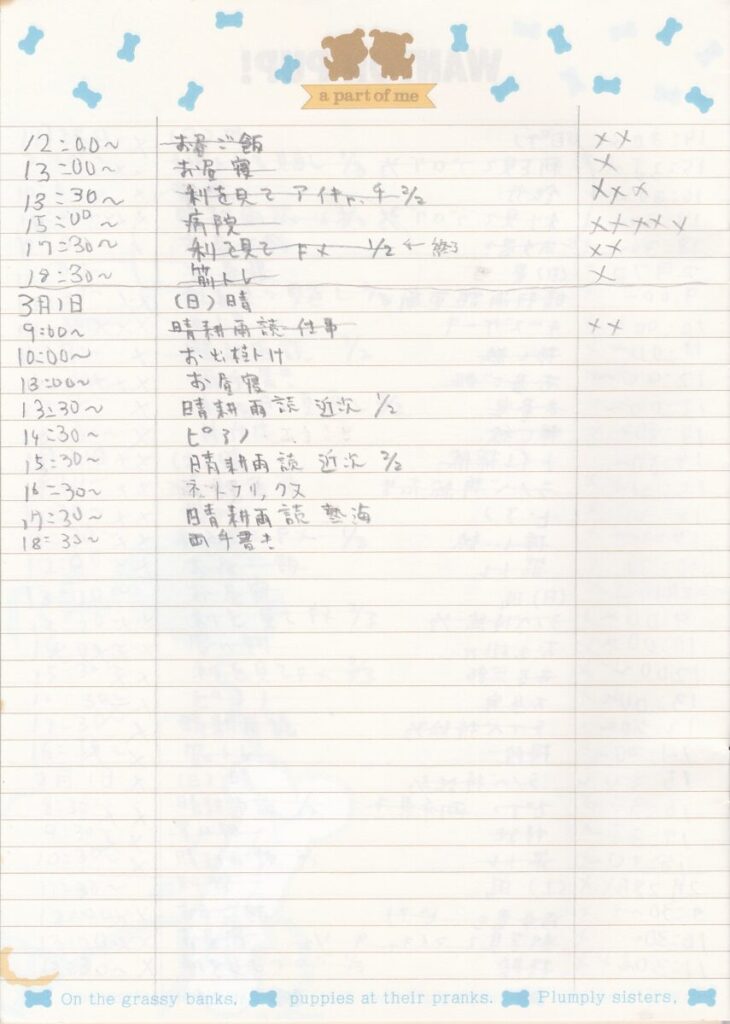 a part of me
12:00~ お昼ご飯 ××
13:00~ お昼寝 ×
13:30~ 利を見て 2/2 ×××
15:00~ 病院 ×××××
17:30~ 利を見て ドメ 1/2 ← 終了 ××
18:30~ 筋トレ ×
3月1日 (日)晴
9:00~ 晴耕雨読 仕事 ××
10:00~ お出掛け
13:00~ お昼寝
13:30~ 晴耕雨読 近次 1/2
14:30~ ピアノ
15:30~ 晴耕雨読 近次 2/2
16:30~ ネットフリックス
17:30~ 晴耕雨読 熱海
18:30~ 手書き
On the grassy banks, puppies at their pranks. Plumply sisters,